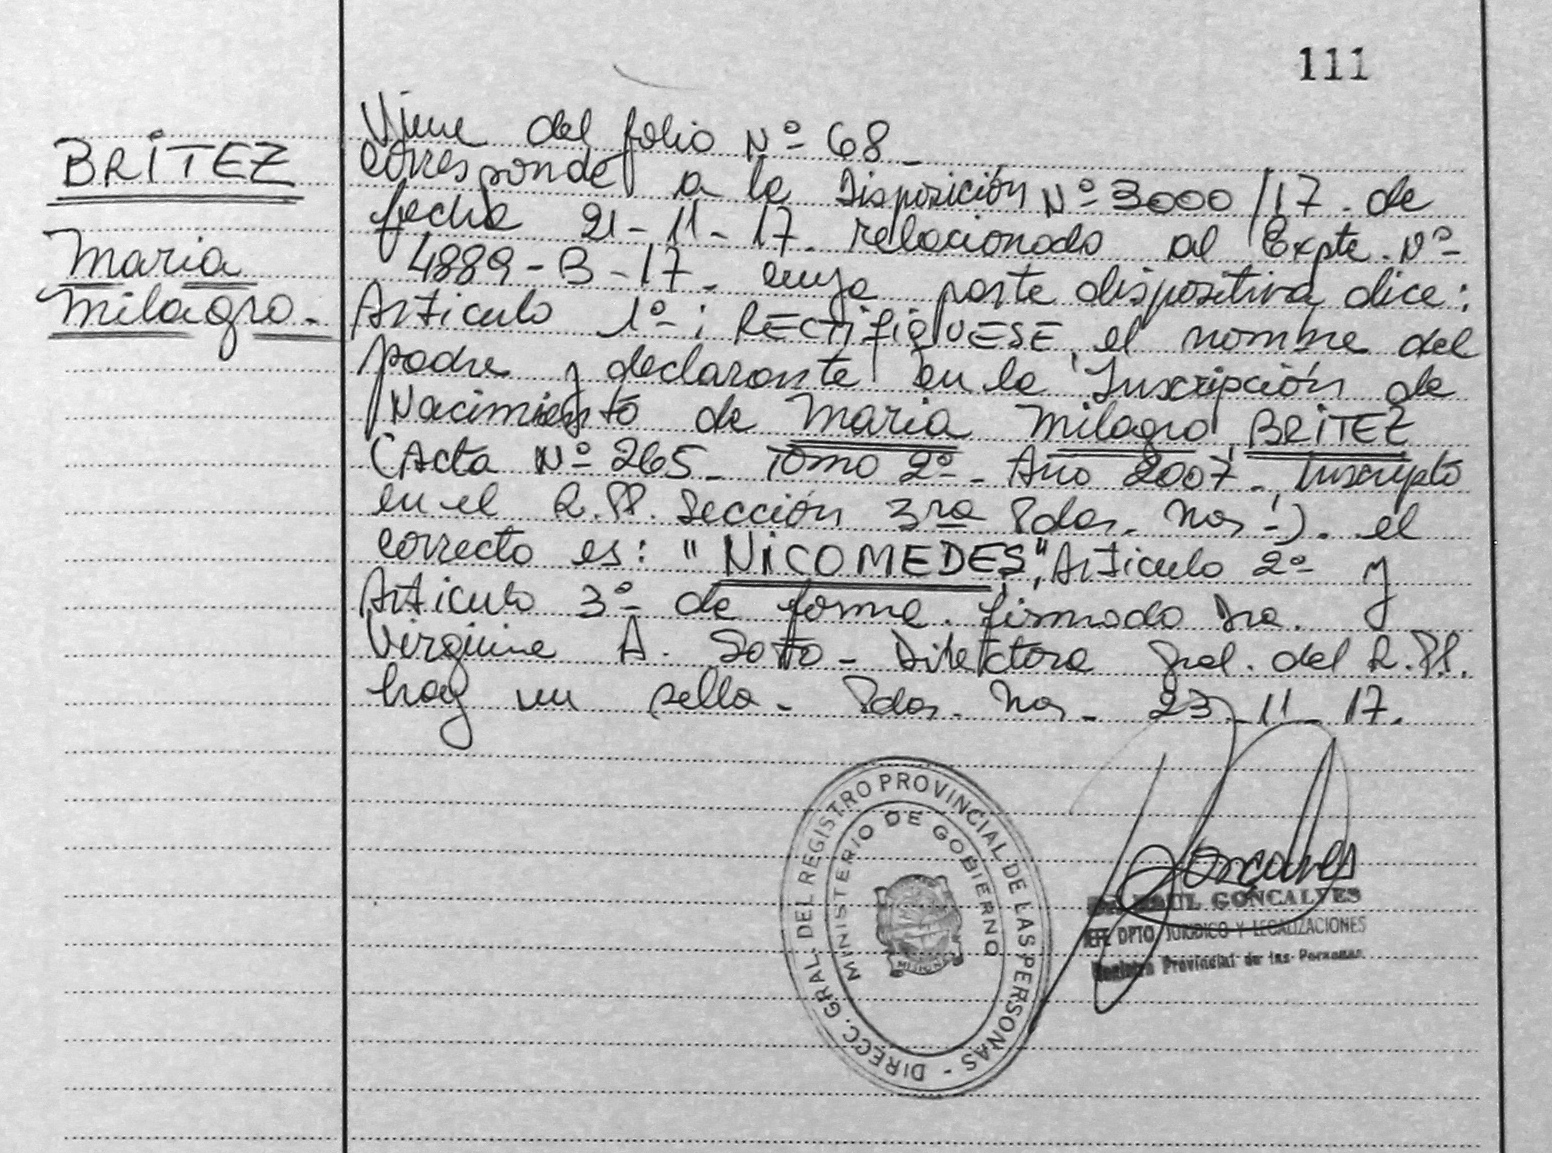 111
BRITEZ
Maria
Milagro.
Viene del folio Nº 68_
corresponde a la Disposición Nº 3000/17. de
fecha 21-11-17. relacionado al Expte. Nº
4889-B-17_ cuya parte dispositiva dice:
Artículo 1º: RECTIFIQUESE, el nombre del
padre y declarante en la Inscripción de
Nacimiento de Maria Milagro BRITEZ
(Acta Nº 265_ Tomo 2º_ Año 2007_ Inscripto
en el R.PP. Sección 3ra Pdas. Mns-). el
correcto es: "NICOMEDES", Artículo 2º y
Artículo 3º de forma. firmado Dra.
Virginia A. Sotto_ Directora Gral. del R.PP.
hay un sello_ Pdas. Mns_ 23_11_17.
DIRECC. GRAL. DEL REGISTRO PROVINCIAL DE LAS PERSONAS -
MINISTERIO DE GOBIERNO
Goncalves
RAUL GONCALVES
JEFE DPTO. JURIDICO Y LEGALIZACIONES
Registro Provincial de las Personas